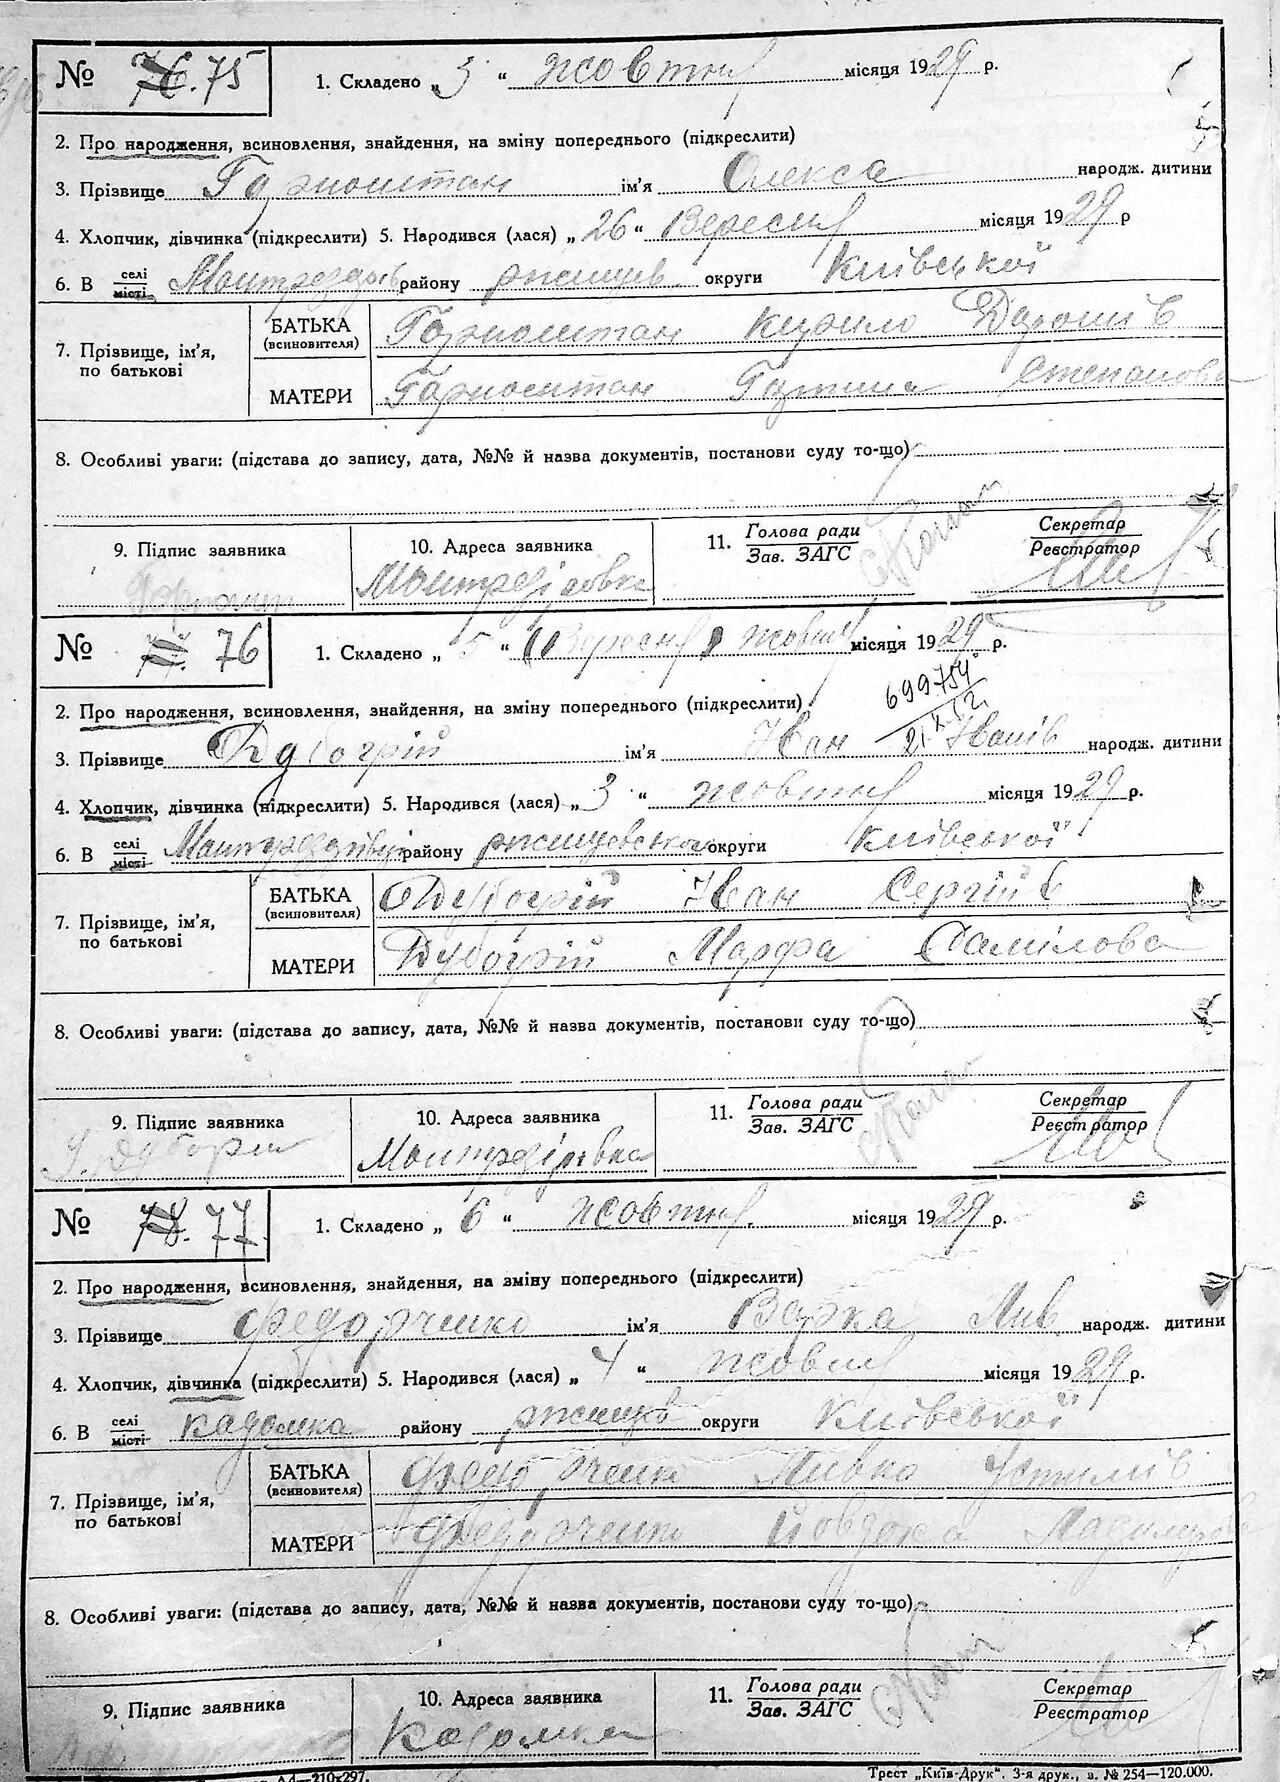 № 76. 75 1. Складено „ 3 “ жовтня місяця 1929 р.
2. Про народження, всиновлення, знайдення, на зміну попереднього (підкреслити)
3. Прізвище Горностай ім’я Олекса народж. дитини
4. Хлопчик, дівчинка (підкреслити) 5. Народився (лася) „ 26 “ Вересня місяця 1929 р
6. В селі місті району ржищев. округи Київської
7. Прізвище, ім’я, по батькові
БАТЬКА (всиновителя) Горностай Кирило
МАТЕРИ Горностай Степанова
8. Особливі уваги: (підстава до запису, дата, №№ й назва документів, постанови суду то-що)
9. Підпис заявника 10. Адреса заявника 11. Голова ради Зав. ЗАГС Секретар Реєстратор
№ 77. 76 1. Складено „ 5 “ (Вересня) жовтня місяця 1929 р.
699754
2. Про народження, всиновлення, знайдення, на зміну попереднього (підкреслити)
3. Прізвище Дубогрій ім’я Іван Іванів народж. дитини
4. Хлопчик, дівчинка (підкреслити) 5. Народився (лася) „ 3 “ жовтня місяця 1929 р.
6. В селі місті району ржищевської округи Київської
7. Прізвище, ім’я, по батькові
БАТЬКА (всиновителя) Дубогрій Іван Сергіїв
МАТЕРИ Дубогрій Марфа Самілова
8. Особливі уваги: (підстава до запису, дата, №№ й назва документів, постанови суду то-що)
9. Підпис заявника 10. Адреса заявника 11. Голова ради Зав. ЗАГС Секретар Реєстратор
№ 78. 77. 1. Складено „ 6 “ жовтня. місяця 1929 р.
2. Про народження, всиновлення, знайдення, на зміну попереднього (підкреслити)
3. Прізвище Федорченко ім’я Варка народж. дитини
4. Хлопчик, дівчинка (підкреслити) 5. Народився (лася) „ 4 “ жовтня місяця 1929 р.
6. В селі місті Кадомка району округи Київської
7. Прізвище, ім’я, по батькові
БАТЬКА (всиновителя) Федорченко
МАТЕРИ Федорченко Йовдоха
8. Особливі уваги: (підстава до запису, дата, №№ й назва документів, постанови суду то-що)
9. Підпис заявника 10. Адреса заявника Кадомка 11. Голова ради Зав. ЗАГС Секретар Реєстратор
А4—210x297. Трест „Київ-Друк“. 3-я друк., з. № 254—120.000.